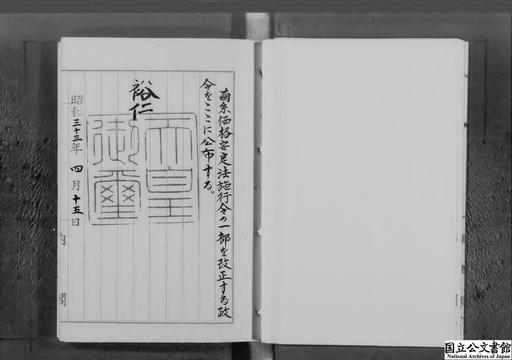 繭糸価格安定法施行令の一部を改正する政
令をここに公布する。
裕仁
天皇
御璽
昭和三十三年 四月十五日
内閣
国立公文書館
National Archives of Japan